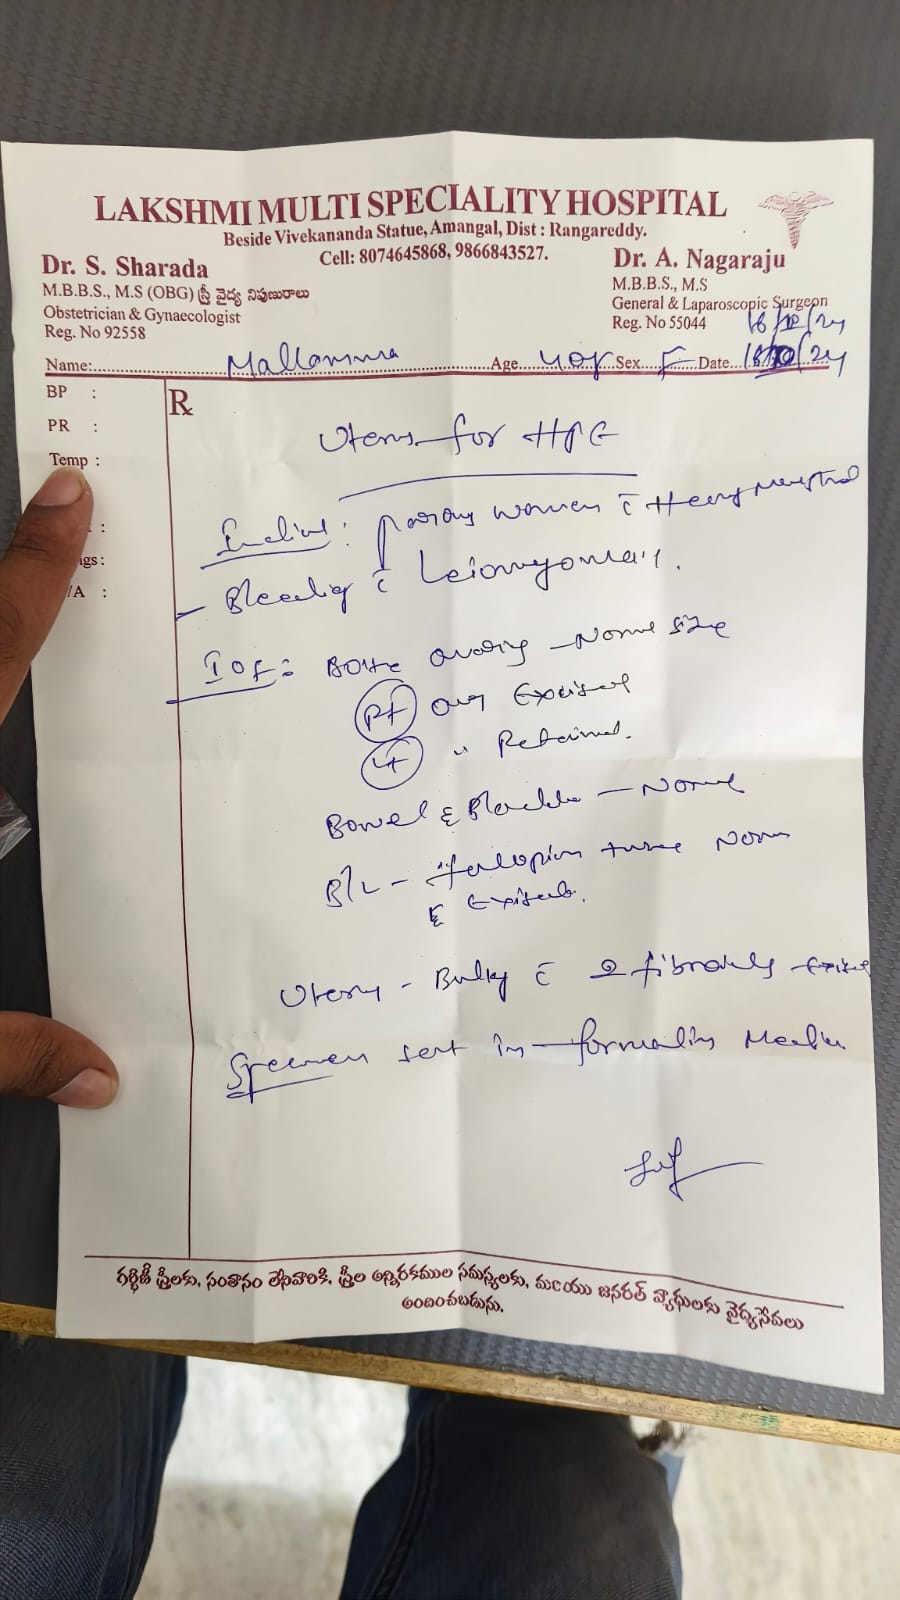 LAKSHMI MULTI SPECIALITY HOSPITAL
Beside Vivekananda Statue, Amangal, Dist : Rangareddy.
Cell: 8074645868, 9866843527.
Dr. S. Sharada
M.B.B.S., M.S (OBG) స్త్రీ వైద్య నిపుణురాలు
Obstetrician & Gynaecologist
Reg. No 92558
Dr. A. Nagaraju
M.B.B.S., M.S
General & Laparoscopic Surgeon
Reg. No 55044
16/12/24
Name: Mallamma Age 40y Sex F Date
BP :
PR :
Temp :
℞
Uterus for HPE
: women c̄ Heavy menstrual
- Bleeding c̄
IOF : Both Normal size
Rt Excised
Lt " Retained.
Bowel & Bladder - Normal
B/L - fallopian tube Normal
&
Uterus - Bulky c̄ 2 fibroids
Specimen sent in formalin
గర్భిణీ స్త్రీలకు, సంతానం లేనివారికి, స్త్రీల అన్నిరకముల సమస్యలకు, మరియు జనరల్ వ్యాధులకు వైద్యసేవలు
అందించబడును.